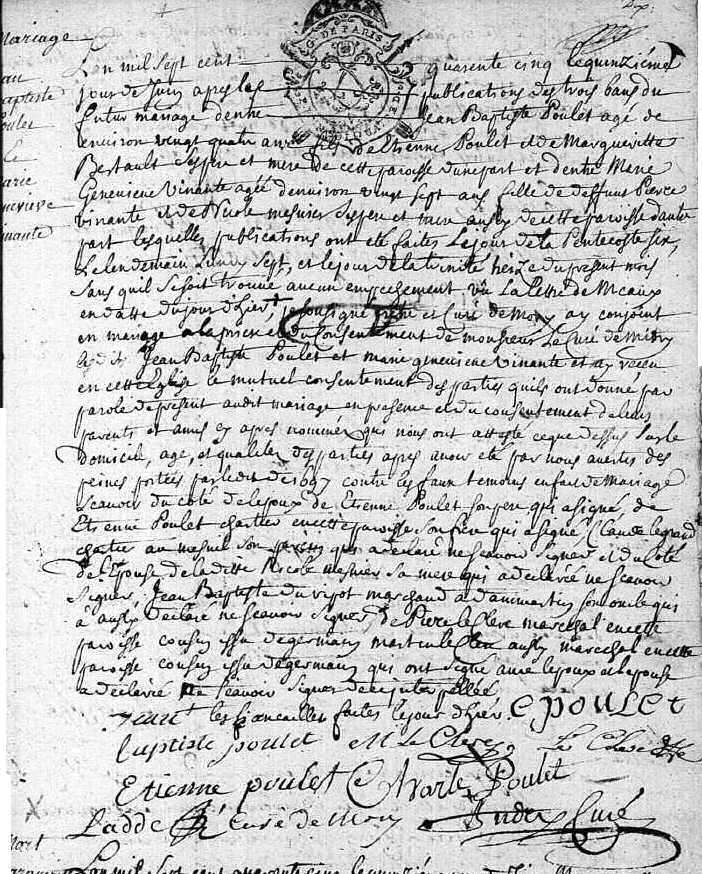 Mariage
Jean
Baptiste
Poulet
&
Marie
Genevieve
Vinante
G. DE PARIS
L'an mil sept cent quarente cinq le quinziéme
jour de Juin apres les publications des trois bans du
futur mariage d'entre Jean Baptiste Poulet agé de
environ vingt quatre ans fils de Etienne Poulet et de Margueritte
Bertault ses pere et mere de cette paroisse d'une part et d'entre Marie
Genevieve Vinante agée d'environ vingt sept ans fille de deffunt Pierre
Vinante et de Nicole mesnier ses pere et mere aussy de cette paroisse d'autre
part lesquelles publications ont eté faites le jour de la Pentecoste six,
le lendemain Lundy sept, et le jour de la trinité treize du present mois
sans quil se soit trouvé aucun empechement vû la lettre de Meaux
en datte du jour d'hier, je soussigné prêtre et Curé de Mory ay conjoint
en mariage du consentement de monsieur Le Curé de Mitry
lesdits Jean Baptiste Poulet et marie genevieve Vinante et ay receu
en cette Eglise le mutuel consentement des parties quils ont donné par
parole de present audit mariage en presence et du consentement de leurs
parents et amis cy apres nommez qui nous ont attesté ce que dessus sur le
domicil, age, et qualitez des parties apres avoir eté par nous avertis des
peines portées par ledit de 1697 contre les faux temoins en fait de Mariage
scavoir du coté de l'epoux de Etienne Poulet son pere qui a signé, de
Etienne Poulet chartier en cette paroisse son frere qui a signé, Claude legrand
chartier au mesnil son qui a declaré ne scavoir signer et du coté
de l'Epouse de laditte Nicole mesnier sa mere qui a declarée ne scavoir
signer, Jean Baptiste du vivot marchand a dammartin son oncle qui
a aussy declaré ne scavoir signer, de Pierre le Clerc marechal en cette
paroisse cousin issu de germain martin le Clerc aussy marechal en cette
paroisse cousin issu de germain qui ont signé avec l'epoux et l'epouse
a declaré ne scavoir signer de ce interpellée
les fiancailles faites le jour d'hier. e POULEt
jean baptiste poulet M Le Clerc Le Clerc
Etienne poulet Charle Poulet
Ladde Curé de Mory Curé
Mort
L'an mil sept cent quarente cinq le quinziéme